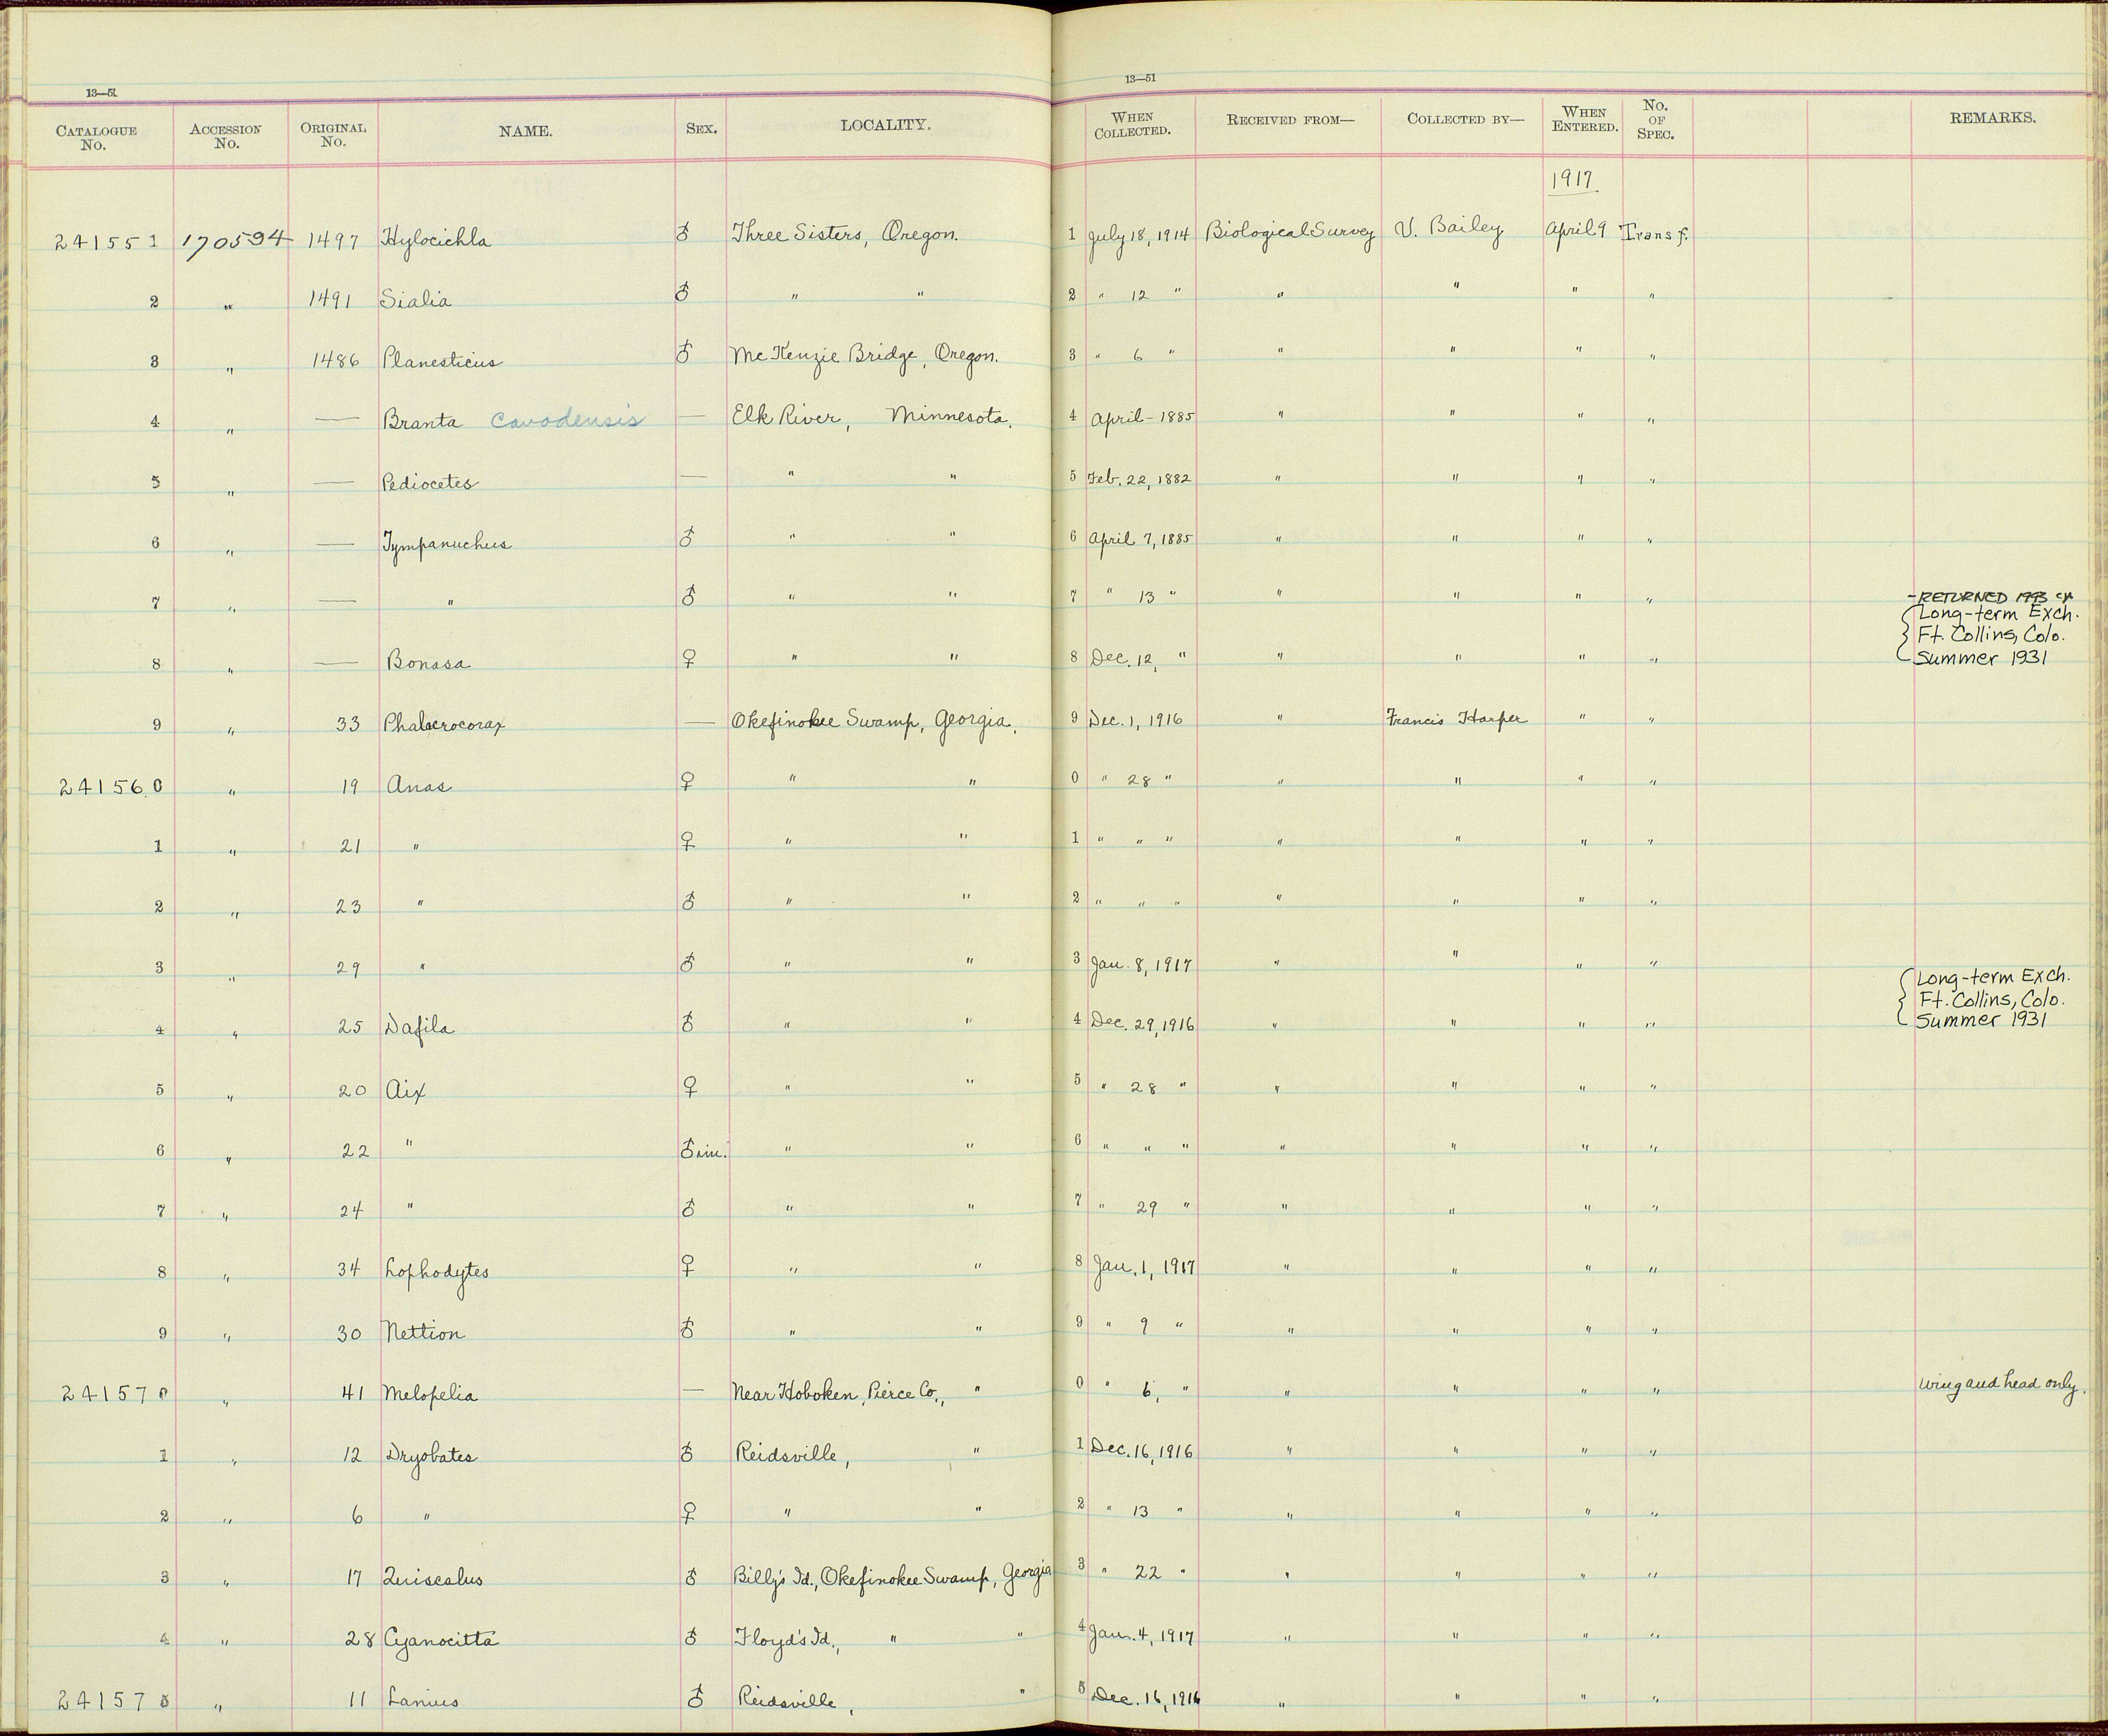 13—51
13—51
CATALOGUE No. ACCESSION No. ORIGINAL No. NAME. SEX. LOCALITY. WHEN COLLECTED. RECEIVED FROM— COLLECTED BY— WHEN ENTERED. No. OF SPEC. REMARKS.
1917
241551 170594 1497 Hylocichla ♂ Three Sisters, Oregon. 1 July 18, 1914 Biological Survey V. Bailey April 9 Transf.
2 " 1491 Sialia ♂ " " 2 " 12 " " " " "
3 " 1486 Planesticus ♂ McKenzie Bridge, Oregon. 3 " 6 " " " " "
4 " — Branta canadensis — Elk River, Minnesota. 4 April – 1885 " " " "
5 " — Pediocetes — " " 5 Feb. 22, 1882 " " " "
6 " — Tympanuchus ♂ " " 6 April 7, 1885 " " " "
7 " — " ♂ " " 7 " 13 " " " " " - RETURNED 1993
8 " — Bonasa ♀ " " 8 Dec. 12, " " " " " Long-term Exch. Ft. Collins, Colo. Summer 1931
9 " 33 Phalacrocorax — Okefinokee Swamp, Georgia. 9 Dec. 1, 1916 " Francis Harper " "
241560 " 19 Anas ♀ " " 0 " 28 " " " " "
1 " 21 " ♀ " " 1 " " " " " " "
2 " 23 " ♂ " " 2 " " " " " " "
3 " 29 " ♂ " " 3 Jan. 8, 1917 " " " "
4 " 25 Dafila ♂ " " 4 Dec. 29, 1916 " " " " Long-term Exch. Ft. Collins, Colo. Summer 1931
5 " 20 Aix ♀ " " 5 " 28 " " " " "
6 " 22 " ♂ im. " " 6 " " " " " " "
7 " 24 " ♂ " " 7 " 29 " " " " "
8 " 34 Lophodytes ♀ " " 8 Jan. 1, 1917 " " " "
9 " 30 Nettion ♂ " " 9 " 9 " " " " "
241570 " 41 Melopelia — Near Hoboken, Pierce Co., " 0 " 6, " " " " " wing and head only.
1 " 12 Dryobates ♂ Reidsville, " 1 Dec. 16, 1916 " " " "
2 " 6 " ♀ " " 2 " 13 " " " " "
3 " 17 Quiscalus ♂ Billy's Id., Okefinokee Swamp, Georgia 3 " 22 " " " " "
4 " 28 Cyanocitta ♂ Floyd's Id., " " 4 Jan. 4, 1917 " " " "
241575 " 11 Lanius ♂ Reidsville, " 5 Dec. 16, 1916 " " " "